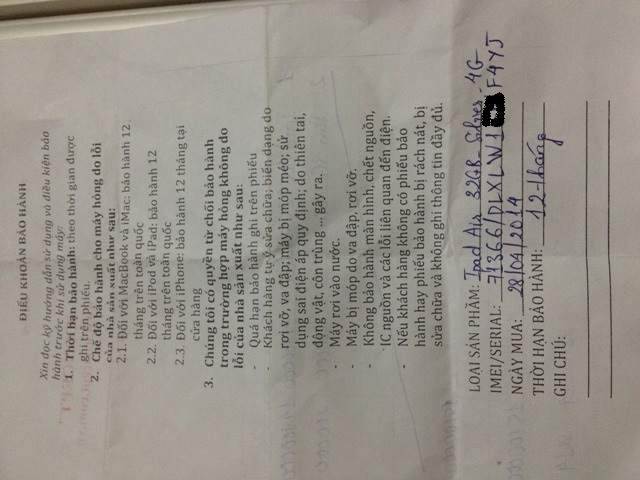 ĐIỀU KHOẢN BẢO HÀNH
Xin đọc kỹ hướng dẫn sử dụng và điều kiện bảo
hành trước khi sử dụng máy:
1. Thời hạn bảo hành: theo thời gian được
ghi trên phiếu.
2. Chế độ bảo hành cho máy hỏng do lỗi
của nhà sản xuất như sau:
2.1. Đối với MacBook và iMac: bảo hành 12
tháng trên toàn quốc
2.2. Đối với iPod và iPad: bảo hành 12
tháng trên toàn quốc
2.3. Đối với iPhone: bảo hành 12 tháng tại
cửa hàng
3. Chúng tôi có quyền từ chối bảo hành
trong trường hợp máy hỏng không do
lỗi của nhà sản xuất như sau:
- Quá hạn bảo hành ghi trên phiếu
- Khách hàng tự ý sửa chữa; biến dạng do
rơi vỡ, va đập; máy bị móp méo; sử
dụng sai điện áp quy định; do thiên tai,
động vật, côn trùng ... gây ra.
- Máy rơi vào nước.
- Máy bị móp do va đập, rơi vỡ.
- Không bảo hành màn hình, chết nguồn,
IC nguồn và các lỗi liên quan đến điện.
- Nếu khách hàng không có phiếu bảo
hành hay phiếu bảo hành bị rách nát, bị
sửa chữa và không ghi thông tin đầy đủ.
LOẠI SẢN PHẨM: Ipad Air 32GB Silver - 4G
IMEI/SERIAL: 71366/DLXLW1 F4YJ
NGÀY MUA: 28/04/2014
THỜI HẠN BẢO HÀNH: 12 tháng
GHI CHÚ: